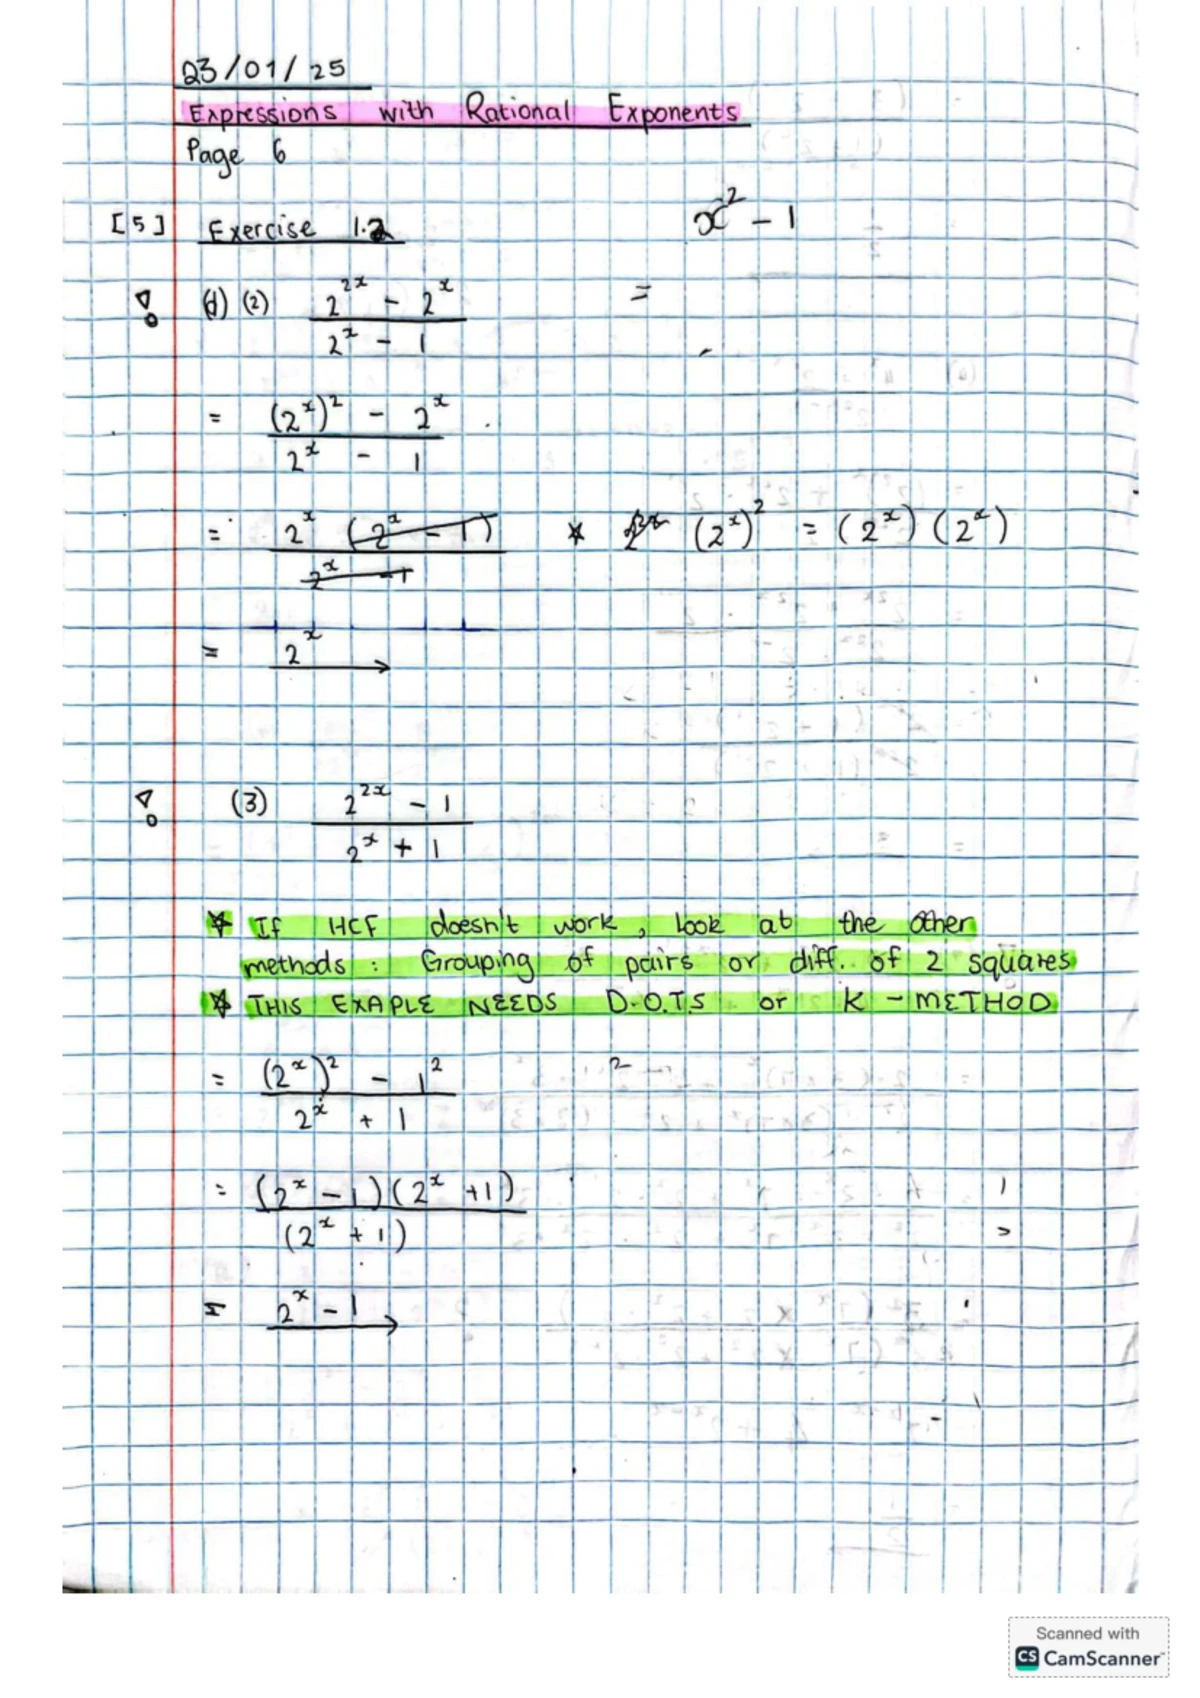 23/01/25
Expressions with Rational Exponents
Page 6
[5] Exercise 1.2
x² - 1
=
(d) (2) 2^2x - 2^x
2^x - 1
= (2^x)² - 2^x
2^x - 1
= 2^x (2^x - 1) * (2^x)² = (2^x)(2^x)
2^x - 1
= 2^x
(3) 2^2x - 1
2^x + 1
* If HCF doesn't work, look at the other
methods : Grouping of pairs or diff. of 2 squares
* THIS EXAPLE NEEDS D.O.T.S or K - METHOD
= (2^x)² - 1² 2
2^x + 1
= (2^x - 1)(2^x + 1)
(2^x + 1)
= 2^x - 1
Scanned with
CS CamScanner